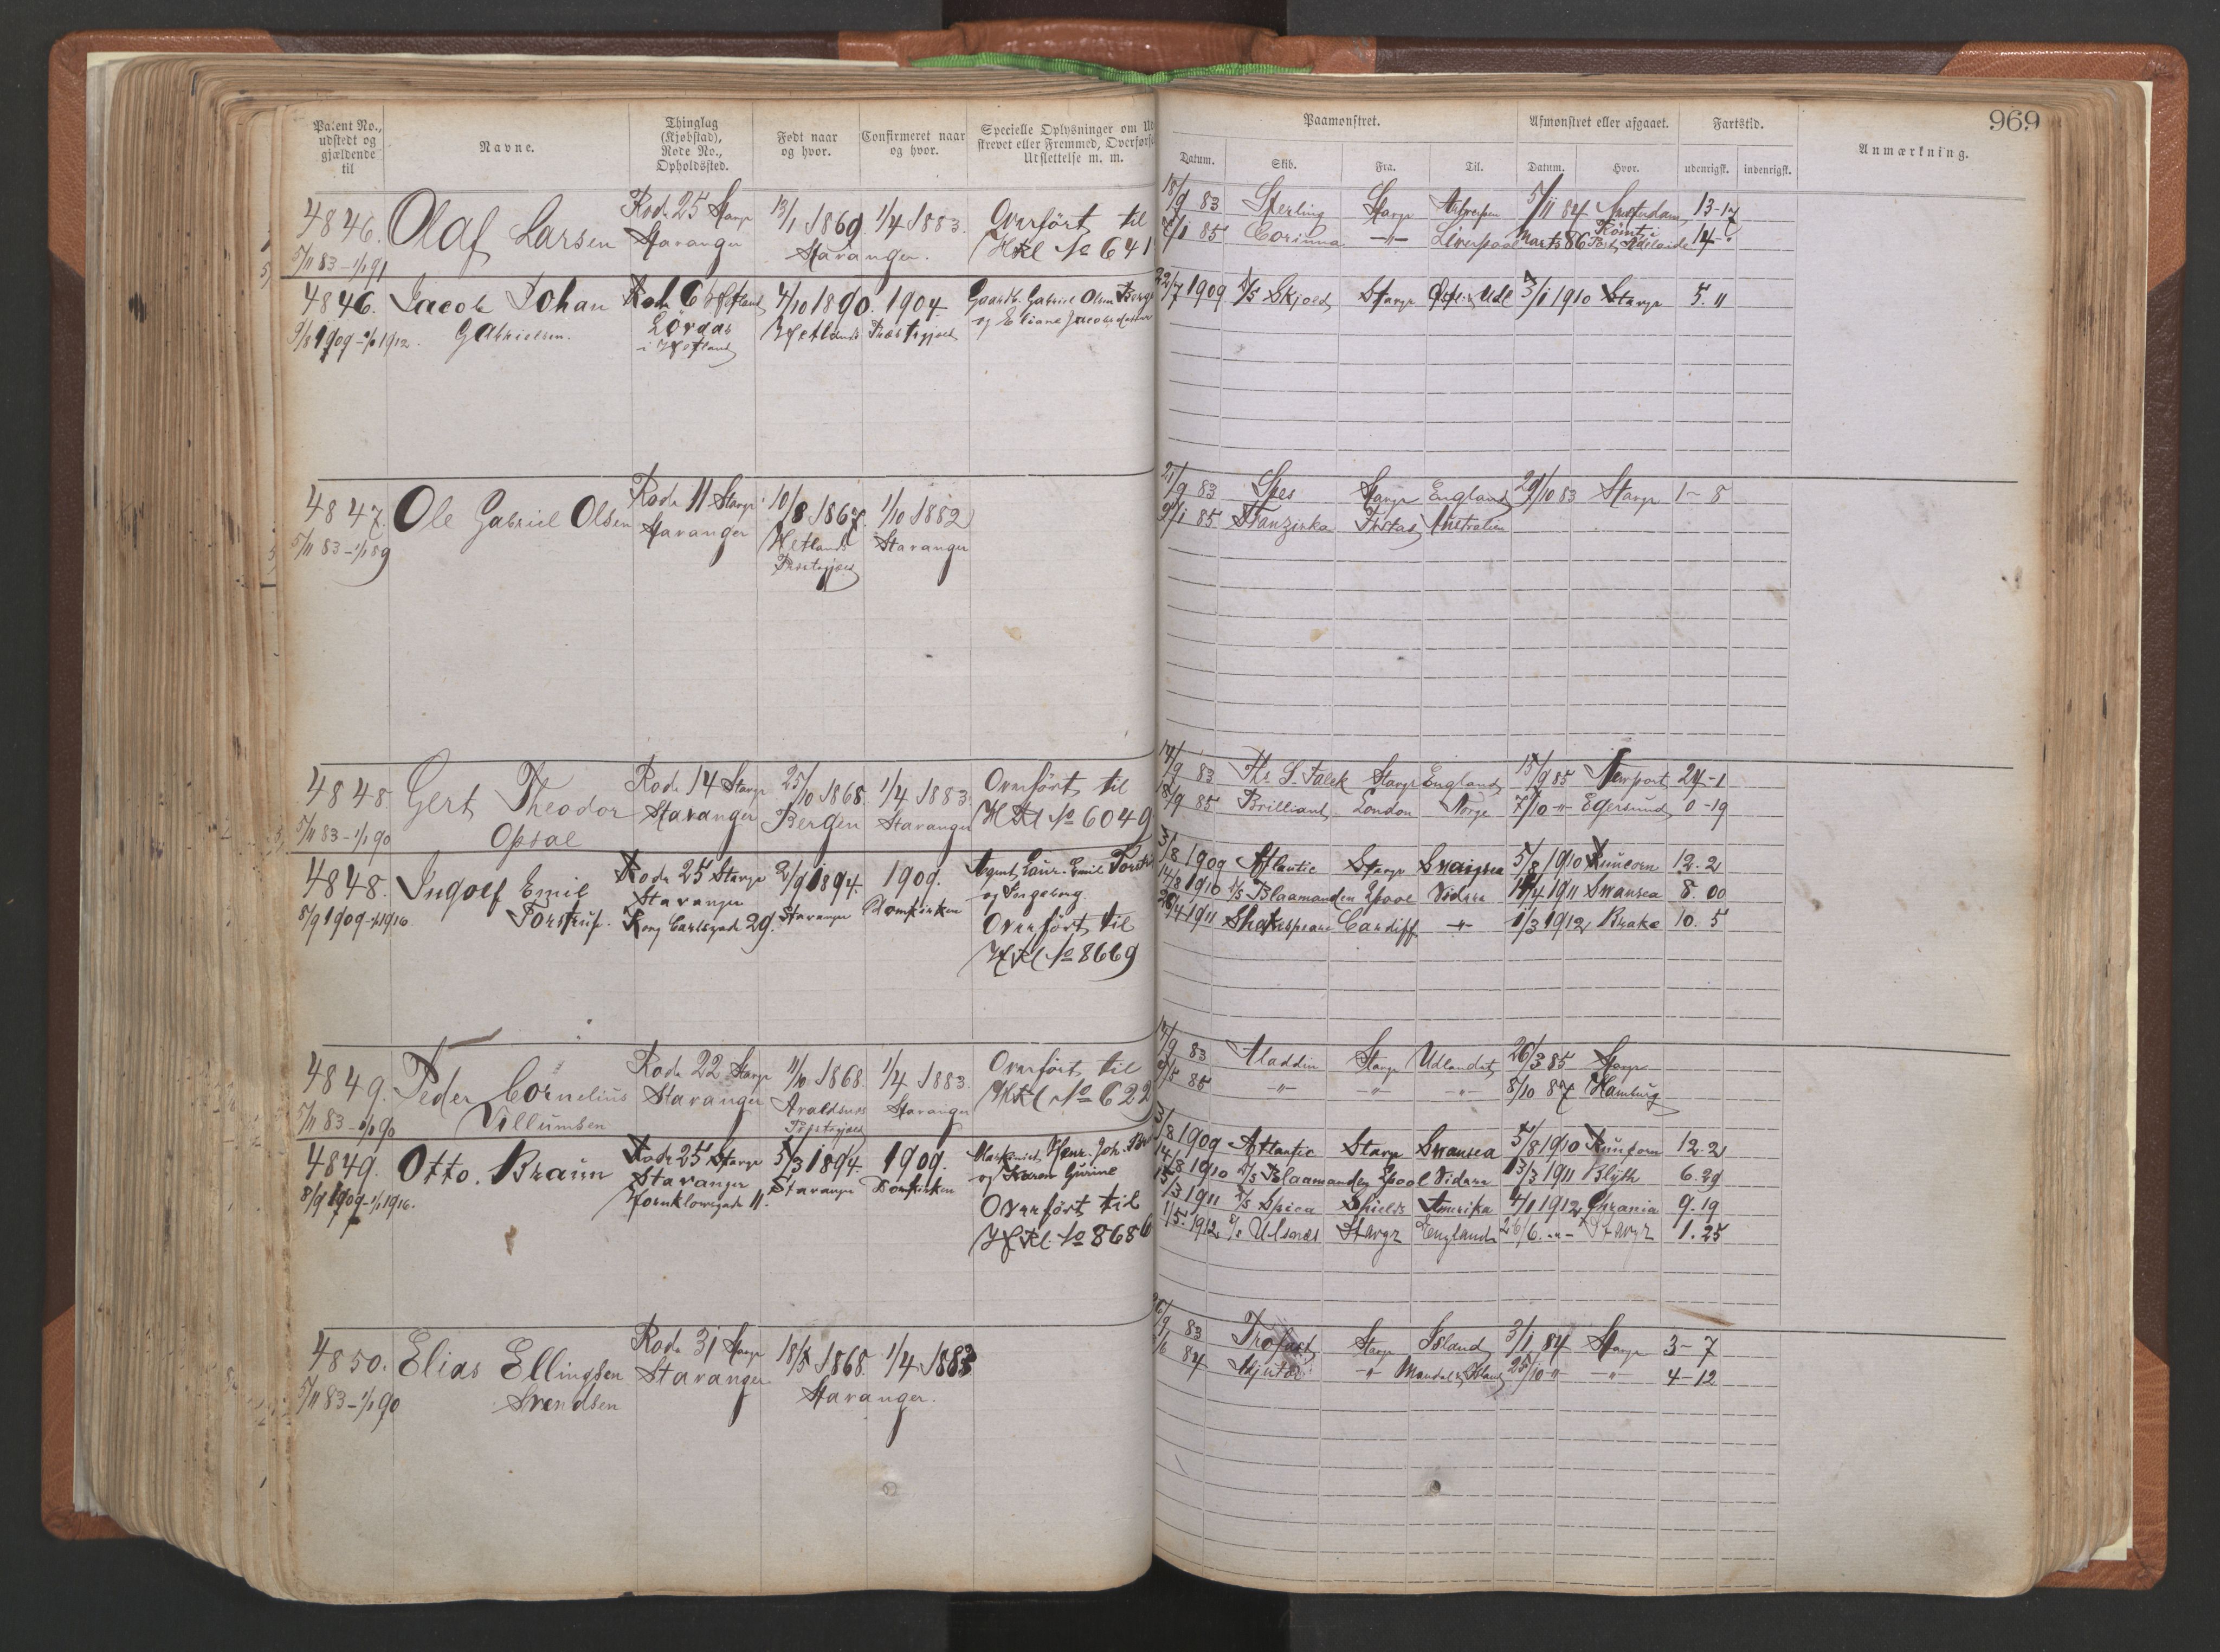 969
Patent No., udstedt og gjældende til
Navne.
Thinglag (Kjøbstad), Rode No., Opholdssted.
Født naar og hvor.
Confirmeret naar og hvor.
Specielle Oplysninger om
strevet eller Fremmed, Overførs
Udslettelse m. m.
Paamønstret.
Afmønstret eller afgaaet.
Fartstid.
Anmærkning.
Datum. Skib. Fra. Til. Datum. Hvor. udenrigsk. indenrigsk.
4846. Olaf Larsen Rode 25 Stavgr 13/1 1869. 1/4 1883. Overført til
5/11 83 - 1/1 91 Stavanger Stavanger. HRl No 641
18/9 83 Sterling Stavgr Antwerpen 5/11 84 Amsterdam 13-17
7/1 85 Corinna -"- Liverpool Marts 86 Rømt i Port Adelaide 14-"
4846. Jacob Johan Rode 6 Hetland 4/10 1890. 1904. Gaardb. Gabriel Olsen Berge
9/8 1909 - 1/1 1912. Gabrielsen. Lørdas i Hetland Hetlands Præstegjæld og Eliane Jacobsdatter
22/7 1909 D/S Skjold Stavgr Udl 3/1 1910 Stavgr 5. 11
4847. Ole Gabriel Olsen Rode 11 Stavgr 10/8 1867. 1/10 1882
5/11 83 - 1/1 89 Stavanger Hetlands Stavanger
Præstegjæld
21/9 83 Spes Stavgr England 29/10 83 Stavgr 1-8
9/1 85 Franziska Australien
4848. Gert Theodor Rode 14 Stavgr 25/10 1868. 1/4 1883. Overført til
5/11 83 - 1/1 90 Opsal Stavanger Bergen Stavanger HRl No 6049
14/9 83 Ths. S. Falck Stavgr England 15/9 85 Newport 24-1
18/9 85 Brilliant London Norge 7/10 -"- Egersund 0-19
4848. Ingolf Emil Rode 25 Stavgr 2/9 1894. 1909. Agent Laur. Emil Torst
8/9 1909 - 1/1 1916 Torstrup. Stavanger Stavanger Domkirken og Ingeborg.
Kong Carlsgade 29. Overført til
HRl No 8669
3/8 1909 Atlantic Stavgr Swansea 5/8 1910 Runcorn 12. 2
14/8 1910 D/S Blaamanden Lpool Vidare 14/4 1911 Swansea 8. 00
26/4 1911 Shakespeare Cardiff -"- 1/3 1912 Brake 10. 5
4849. Peder Cornelius Rode 22 Stavgr 11/10 1868. 1/4 1883. Overført til
5/11 83 - 1/1 90 Villumsen Stavanger Avaldsnes Stavanger HRl No 622
Præstegjæld
14/9 83 Aladdin Stavgr Udlandet 26/3 85 Stavgr
9/5 85 -"- -"- -"- 8/10 87 Hamburg
4849. Otto. Braun Rode 25 Stavgr 5/3 1894. 1909. Maskinist Henr. Joh. Br
8/9 1909 - 1/1 1916. Stavanger Stavanger Domkirken og Karen Gurine
Hornklowsgade 11. Overført til
HRl. No 8686
3/8 1909 Atlantic Stavgr Swansea 5/8 1910 Runcorn 12. 2
14/8 1910 D/S Blaamanden Lpool Vidare 13/3 1911 Blyth 6. 29
15/3 1911 D/S Spica Shields Amerika 4/1 1912 Chrania 9. 19
1/5. 1912 D/s Ulsnæs Stavgr England 26/6. -"- Stavgr 1. 25
4850. Elias Ellingsen Rode 31 Stavgr 18/5 1868. 1/4 1883
5/11 83 - 1/1 90 Svendsen Stavanger Stavanger.
26/9 83 Trofast Stavgr Island 3/1 84 Stavgr 3-7
/6 84 -"- Mandal & Island 25/10 -"- -"- 4-12